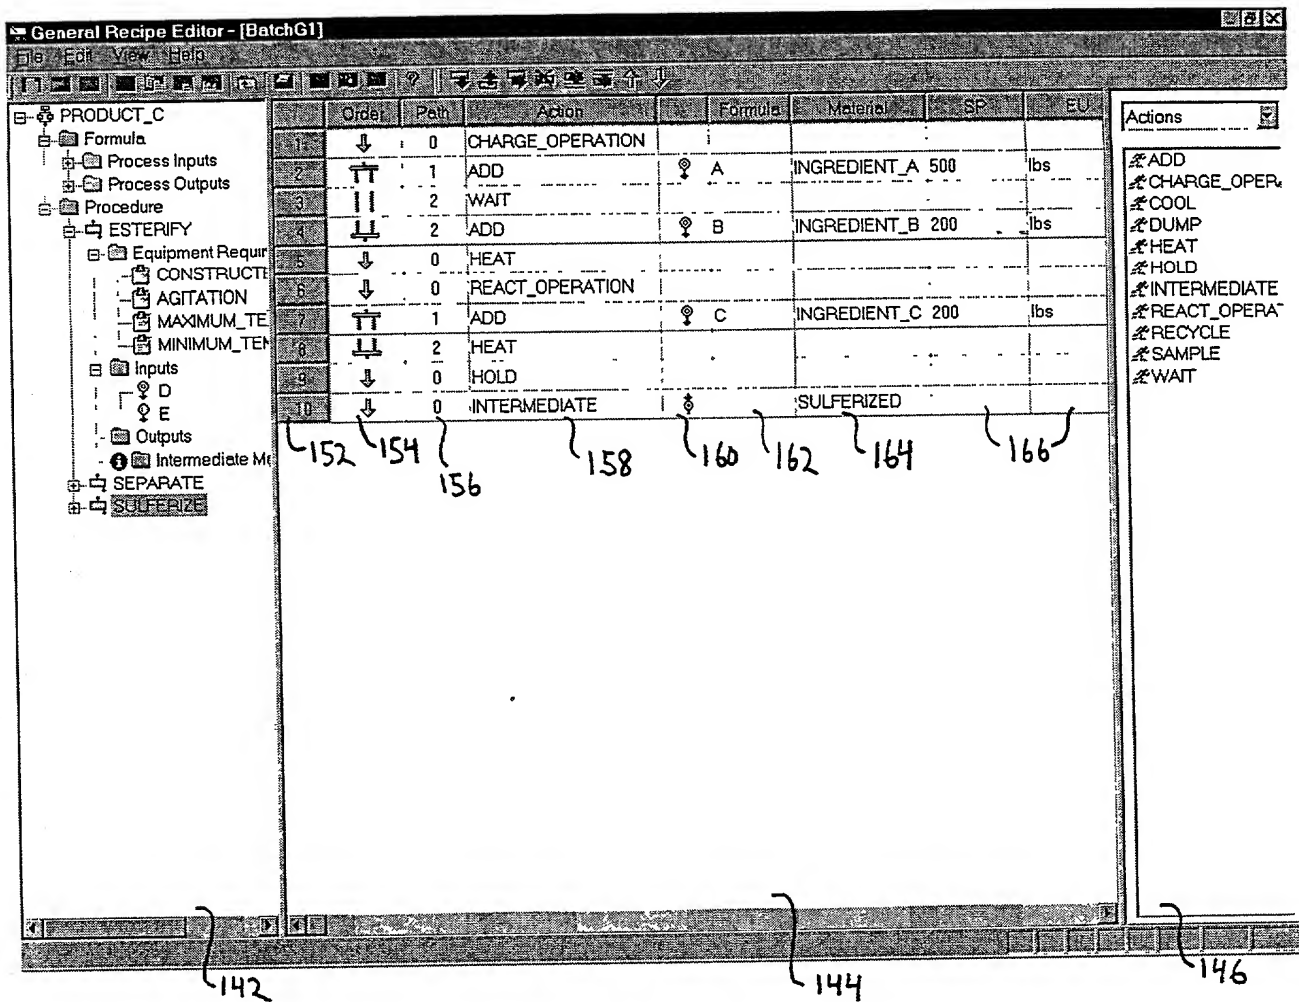 General Recipe Editor - [BatchG1]
File Edit View Help
PRODUCT_C
Formula
Process Inputs
Process Outputs
Procedure
ESTERIFY
Equipment Requir
CONSTRUCTI
AGITATION
MAXIMUM_TE
MINIMUM_TEM
Inputs
D
E
Outputs
Intermediate Me
SEPARATE
SULFERIZE
Order Path Action Formula Material SP EU
1 0 CHARGE_OPERATION
2 1 ADD A INGREDIENT_A 500 lbs
3 2 WAIT
4 2 ADD B INGREDIENT_B 200 lbs
5 0 HEAT
6 0 REACT_OPERATION
7 1 ADD C INGREDIENT_C 200 lbs
8 2 HEAT
9 0 HOLD
10 0 INTERMEDIATE SULFERIZED
152 154 156 158 160 162 164 166
Actions
ADD
CHARGE_OPER
COOL
DUMP
HEAT
HOLD
INTERMEDIATE
REACT_OPERA
RECYCLE
SAMPLE
WAIT
142 144 146